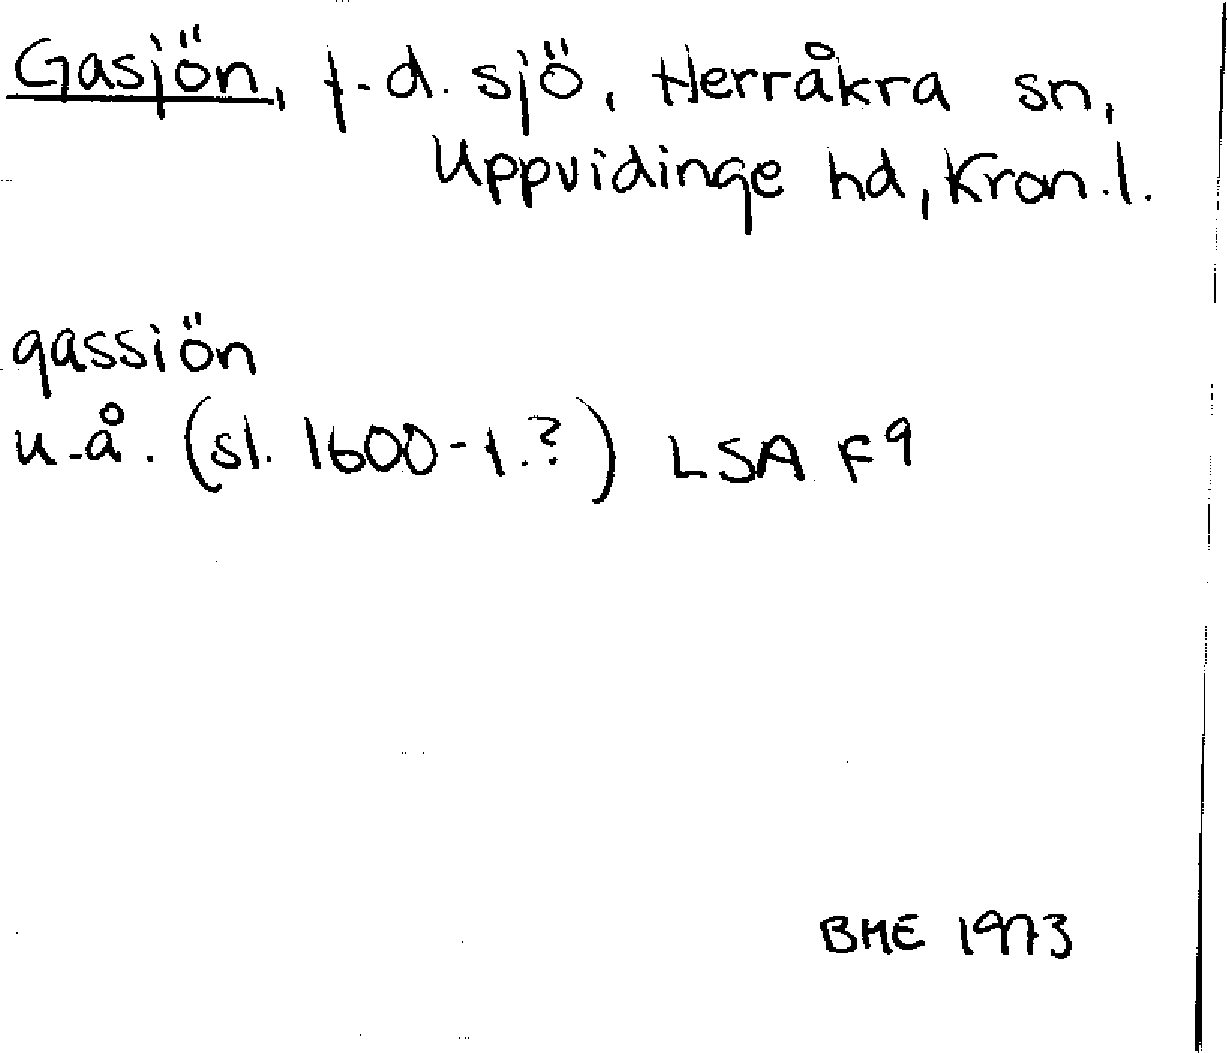 Gasjön, f.d. sjö, Herråkra sn,
Uppvidinge hd, Kron.l.
gassiön
u.å. (sl. 1600-t.?) LSA F9
BME 1973